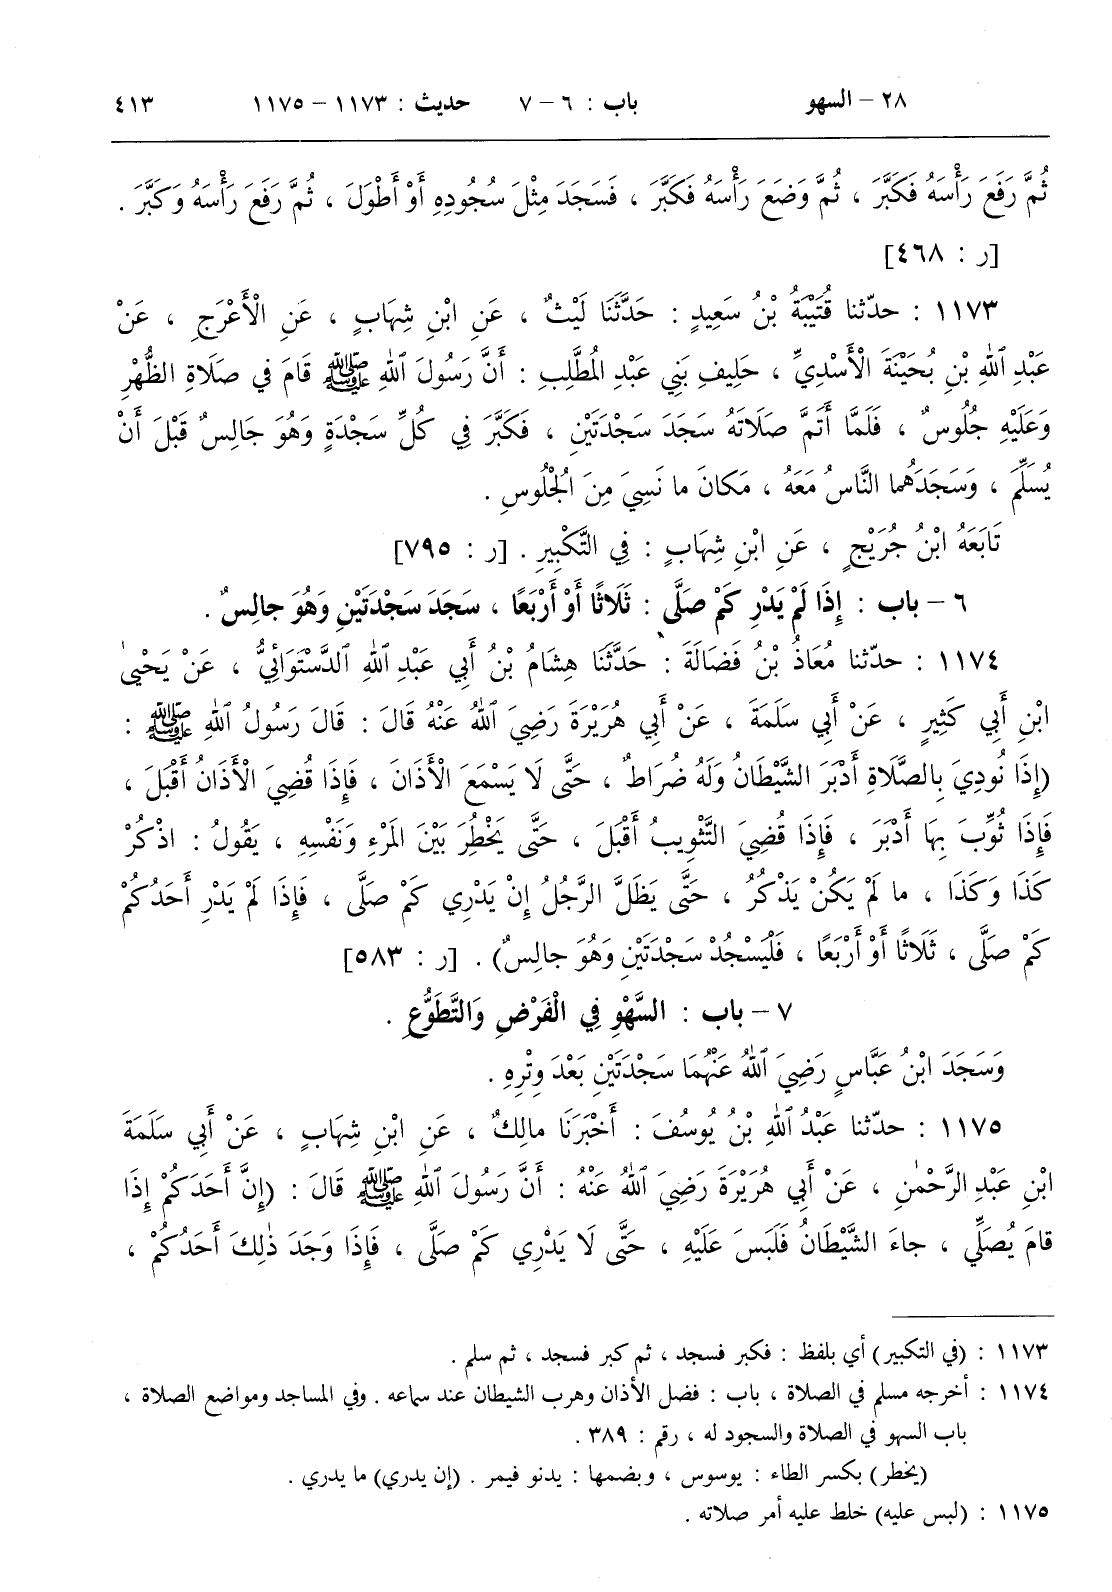 ٢٨ – السهو باب : ٦ – ٧ حديث : ١١٧٣ – ١١٧٥ ٤١٣
ثُمَّ رَفَعَ رَأْسَهُ فَكَبَّرَ ، ثُمَّ وَضَعَ رَأْسَهُ فَكَبَّرَ ، فَسَجَدَ مِثْلَ سُجُودِهِ أَوْ أَطْوَلَ ، ثُمَّ رَفَعَ رَأْسَهُ وَكَبَّرَ .
[ر : ٤٦٨]
١١٧٣ : حدّثنا قُتَيْبَةُ بْنُ سَعِيدٍ : حَدَّثَنَا لَيْثٌ ، عَنِ ابْنِ شِهَابٍ ، عَنِ الْأَعْرَجِ ، عَنْ
عَبْدِ اللهِ بْنِ بُحَيْنَةَ الْأَسْدِيِّ ، حَلِيفِ بَنِي عَبْدِ المُطَّلِبِ : أَنَّ رَسُولَ اللهِ ﷺ قَامَ فِي صَلَاةِ الظُّهْرِ
وَعَلَيْهِ جُلُوسٌ ، فَلَمَّا أَتَمَّ صَلَاتَهُ سَجَدَ سَجْدَتَيْنِ ، فَكَبَّرَ فِي كُلِّ سَجْدَةٍ وَهُوَ جَالِسٌ قَبْلَ أَنْ
يُسَلِّمَ ، وَسَجَدَهُما النَّاسُ مَعَهُ ، مَكانَ ما نَسِيَ مِنَ الجُلُوسِ .
تَابَعَهُ ابْنُ جُرَيْجٍ ، عَنِ ابْنِ شِهَابٍ : فِي التَّكْبِيرِ . [ر : ٧٩٥]
٦ – باب : إِذَا لَمْ يَدْرِ كَمْ صَلَّى : ثَلَاثًا أَوْ أَرْبَعًا ، سَجَدَ سَجْدَتَيْنِ وَهُوَ جالِسٌ .
١١٧٤ : حدّثنا مُعَاذُ بْنُ فَضَالَةَ : حَدَّثَنَا هِشَامُ بْنُ أَبِي عَبْدِ اللهِ الدَّسْتَوَائِيُّ ، عَنْ يَحْيىٰ
ابْنِ أَبِي كَثِيرٍ ، عَنْ أَبِي سَلَمَةَ ، عَنْ أَبِي هُرَيْرَةَ رَضِيَ اللهُ عَنْهُ قَالَ : قَالَ رَسُولُ اللهِ ﷺ :
(إِذَا نُودِيَ بِالصَّلَاةِ أَدْبَرَ الشَّيْطَانُ وَلَهُ ضُرَاطٌ ، حَتَّى لَا يَسْمَعَ الْأَذَانَ ، فَإِذَا قُضِيَ الْأَذَانُ أَقْبَلَ ،
فَإِذَا ثُوِّبَ بِهَا أَدْبَرَ ، فَإِذَا قُضِيَ التَّثْوِيبُ أَقْبَلَ ، حَتَّى يَخْطُِرَ بَيْنَ المَرْءِ وَنَفْسِهِ ، يَقُولُ : اذْكُرْ
كَذَا وَكَذَا ، ما لَمْ يَكُنْ يَذْكُرُ ، حَتَّى يَظَلَّ الرَّجُلُ إِنْ يَدْرِي كَمْ صَلَّى ، فَإِذَا لَمْ يَدْرِ أَحَدُكُمْ
كَمْ صَلَّى ، ثَلَاثًا أَوْ أَرْبَعًا ، فَلْيَسْجُدْ سَجْدَتَيْنِ وَهُوَ جالِسٌ) . [ر : ٥٨٣]
٧ – باب : السَّهْوِ فِي الْفَرْضِ وَالتَّطَوُّعِ .
وَسَجَدَ ابْنُ عَبَّاسٍ رَضِيَ اللهُ عَنْهُمَا سَجْدَتَيْنِ بَعْدَ وِتْرِهِ .
١١٧٥ : حدّثنا عَبْدُ اللهِ بْنُ يُوسُفَ : أَخْبَرَنَا مالِكٌ ، عَنِ ابْنِ شِهَابٍ ، عَنْ أَبِي سَلَمَةَ
ابْنِ عَبْدِ الرَّحْمٰنِ ، عَنْ أَبِي هُرَيْرَةَ رَضِيَ اللهُ عَنْهُ : أَنَّ رَسُولَ اللهِ ﷺ قَالَ : (إِنَّ أَحَدَكُمْ إِذَا
قامَ يُصَلِّي ، جاءَ الشَّيْطَانُ فَلَبَسَ عَلَيْهِ ، حَتَّى لَا يَدْرِي كَمْ صَلَّى ، فَإِذَا وَجَدَ ذٰلِكَ أَحَدُكُمْ ،
١١٧٣ : (في التكبير) أي بلفظ : فكبر فسجد ، ثم كبر فسجد ، ثم سلم .
١١٧٤ : أخرجه مسلم في الصلاة ، باب : فضل الأذان وهرب الشيطان عند سماعه . وفي المساجد ومواضع الصلاة ،
باب السهو في الصلاة والسجود له ، رقم : ٣٨٩ .
(يخطر) بكسر الطاء : يوسوس ، وبضمها : يدنو فيمر . (إن يدري) ما يدري .
١١٧٥ : (لبس عليه) خلط عليه أمر صلاته .